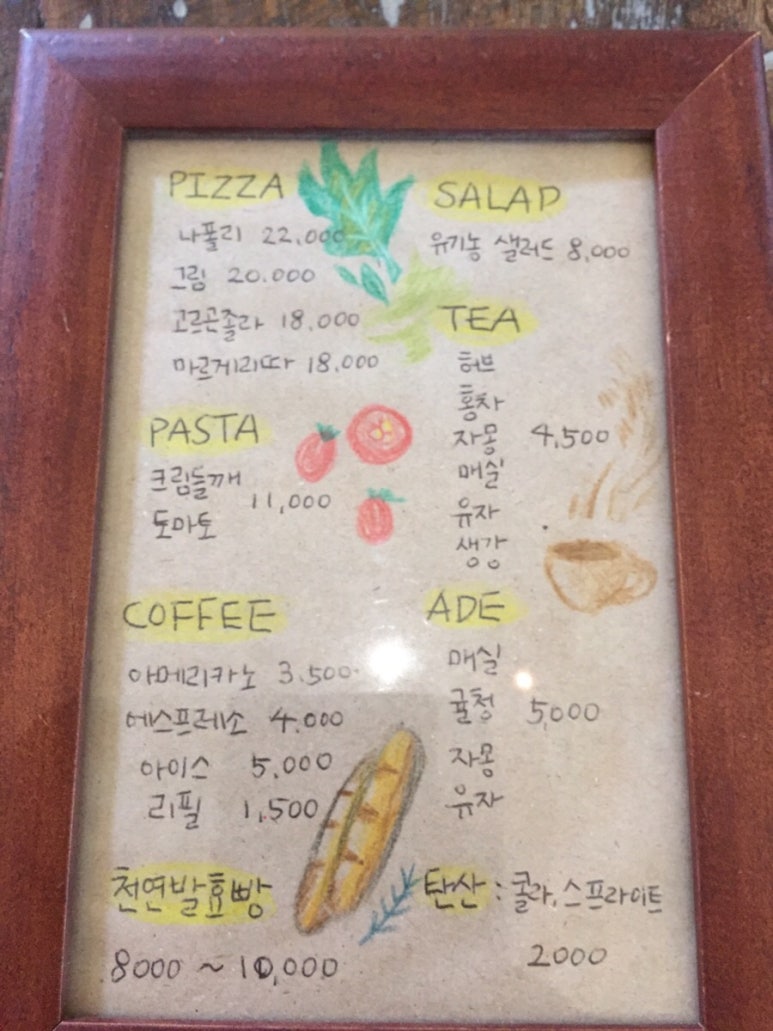 PIZZA
나폴리 22,000
그림 20.000
고르곤졸라 18,000
마르게리따 18,000
PASTA
크림들깨
11,000
토마토
COFFEE
아메리카노 3.500
에스프레소 4.000
아이스 5.000
리필 1,500
천연발효빵
8000 ~ 10,000
SALAD
유기농 샐러드 8,000
TEA
허브
홍차
자몽 4,500
매실
유자
생강
ADE
매실
귤청 5,000
자몽
유자
탄산 : 콜라, 스프라이트
2000